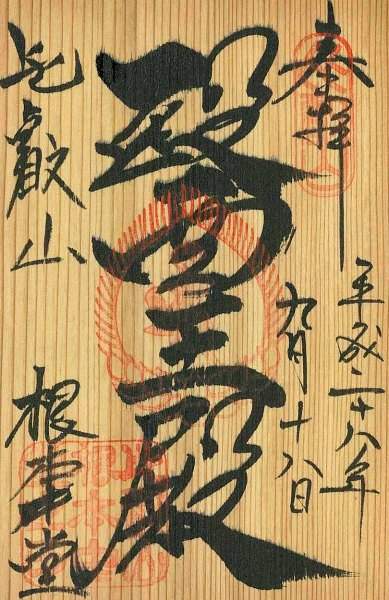 奉拝
平成二十八年
九月十八日
醫王殿
比叡山
根本中堂